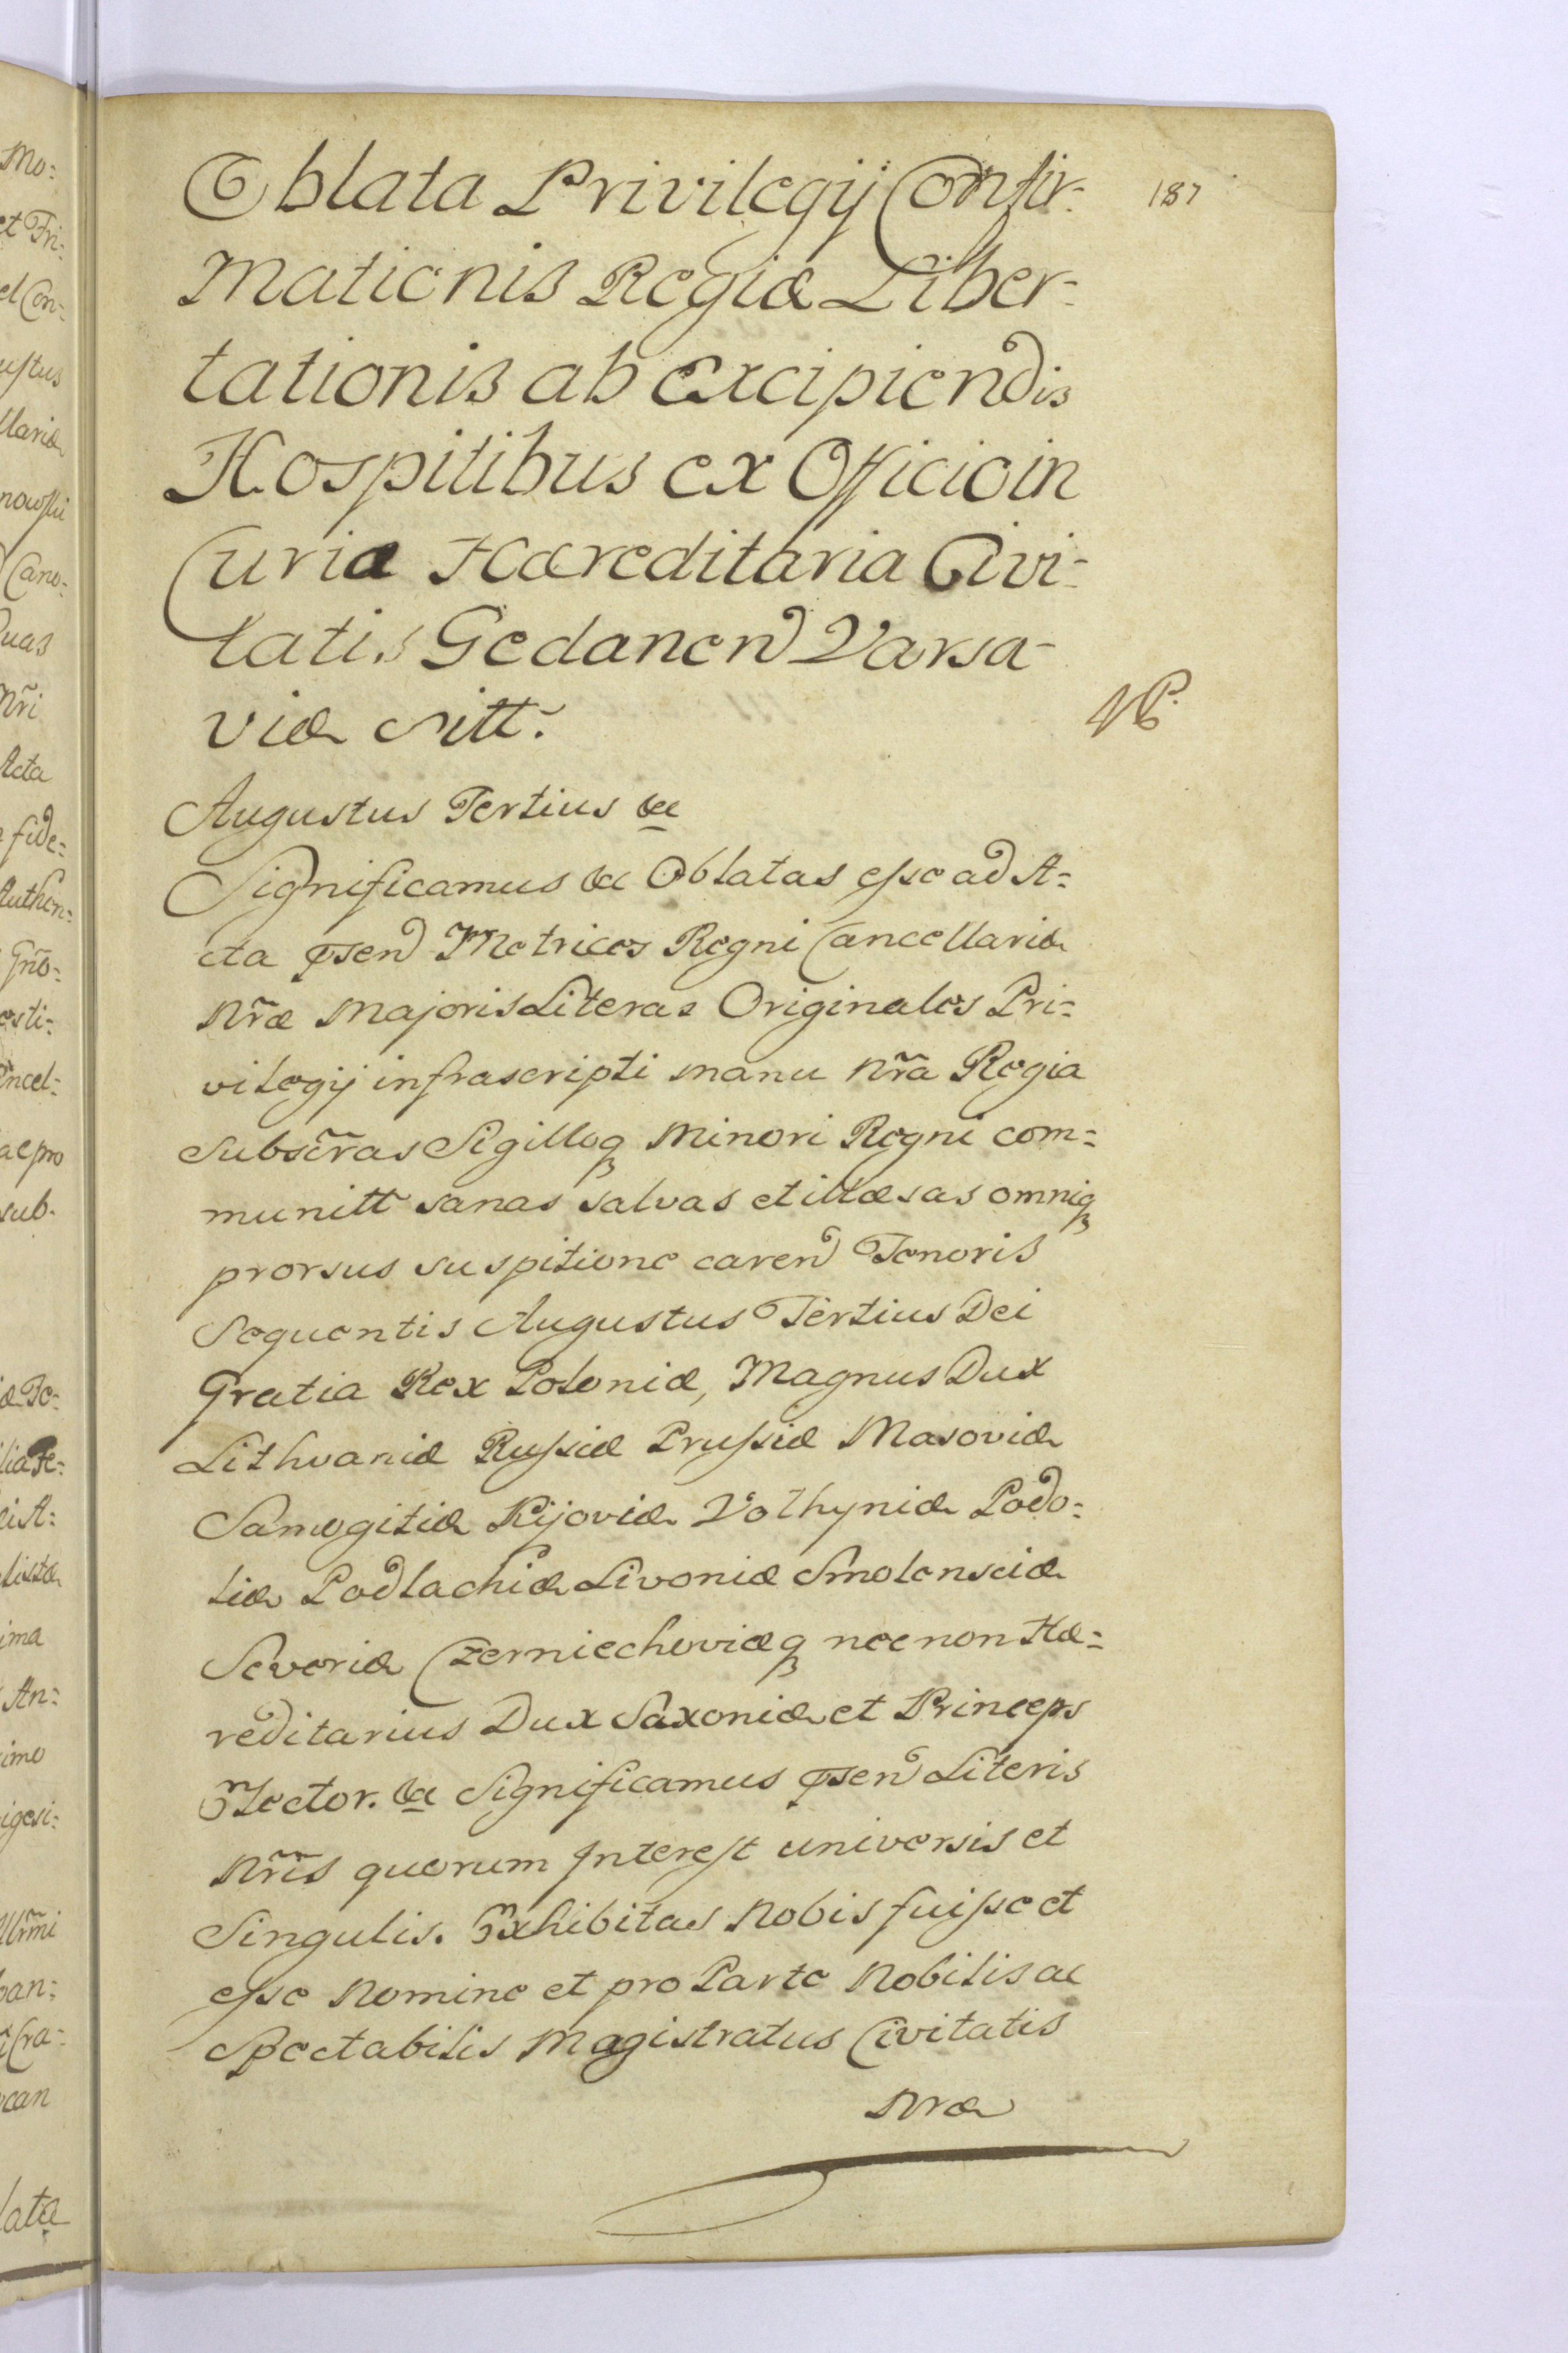 187
Oblata Privilegij Confir-
mationis Regiæ Liber-
tationis ab Excipiendis
Hospitibus ex Officio in
Curia Hæreditaria Civi-
tatis Gedanen Varsa-
viæ sitt.
Augustus Tertius &c
Significamus &c Oblatas esse ad A=
cta psen Metrices Regni Cancellariæ
Nr̃æ Majoris Literas Originales Pri=
vilegij infrascripti manu Nr̃a Regia
Subscr̃as Sigilloq Minori Regni com=
munitt sanas salvas et illæsas omniq
prorsus suspitione caren Tenoris
Sequentis Augustus Tertius Dei
Gratia Rex Poloniæ, Magnus Dux
Lithvaniæ Russiæ Prussiæ Masoviæ
Samogitiæ Kijoviæ Volhyniæ Podo=
liæ Podlachiæ Livoniæ Smolensciæ
Severiæ Czerniechoviæq necnon Hæ=
reditarius Dux Saxoniæ et Princeps
Elector. &c Significamus psen Literis
Nr̃is quorum Interest universis et
Singulis. Exhibitas Nobis fuisse et
esse Nomine et pro Parte Nobilis ac
Spectabilis Magistratus Civitatis
Nræ
Mo:
et Tri:
el Con:
ustus
llariæ
nowski
Cano:
Quas
Nr̃i
Acta
fide:
Authen:
Gño:
esti:
Cancel:
ac pro
sub-
æ Te:
lia Te:
ei A:
listæ
ima
An:
imo
igesi:
Illr̃mi
Cra:
can
lata